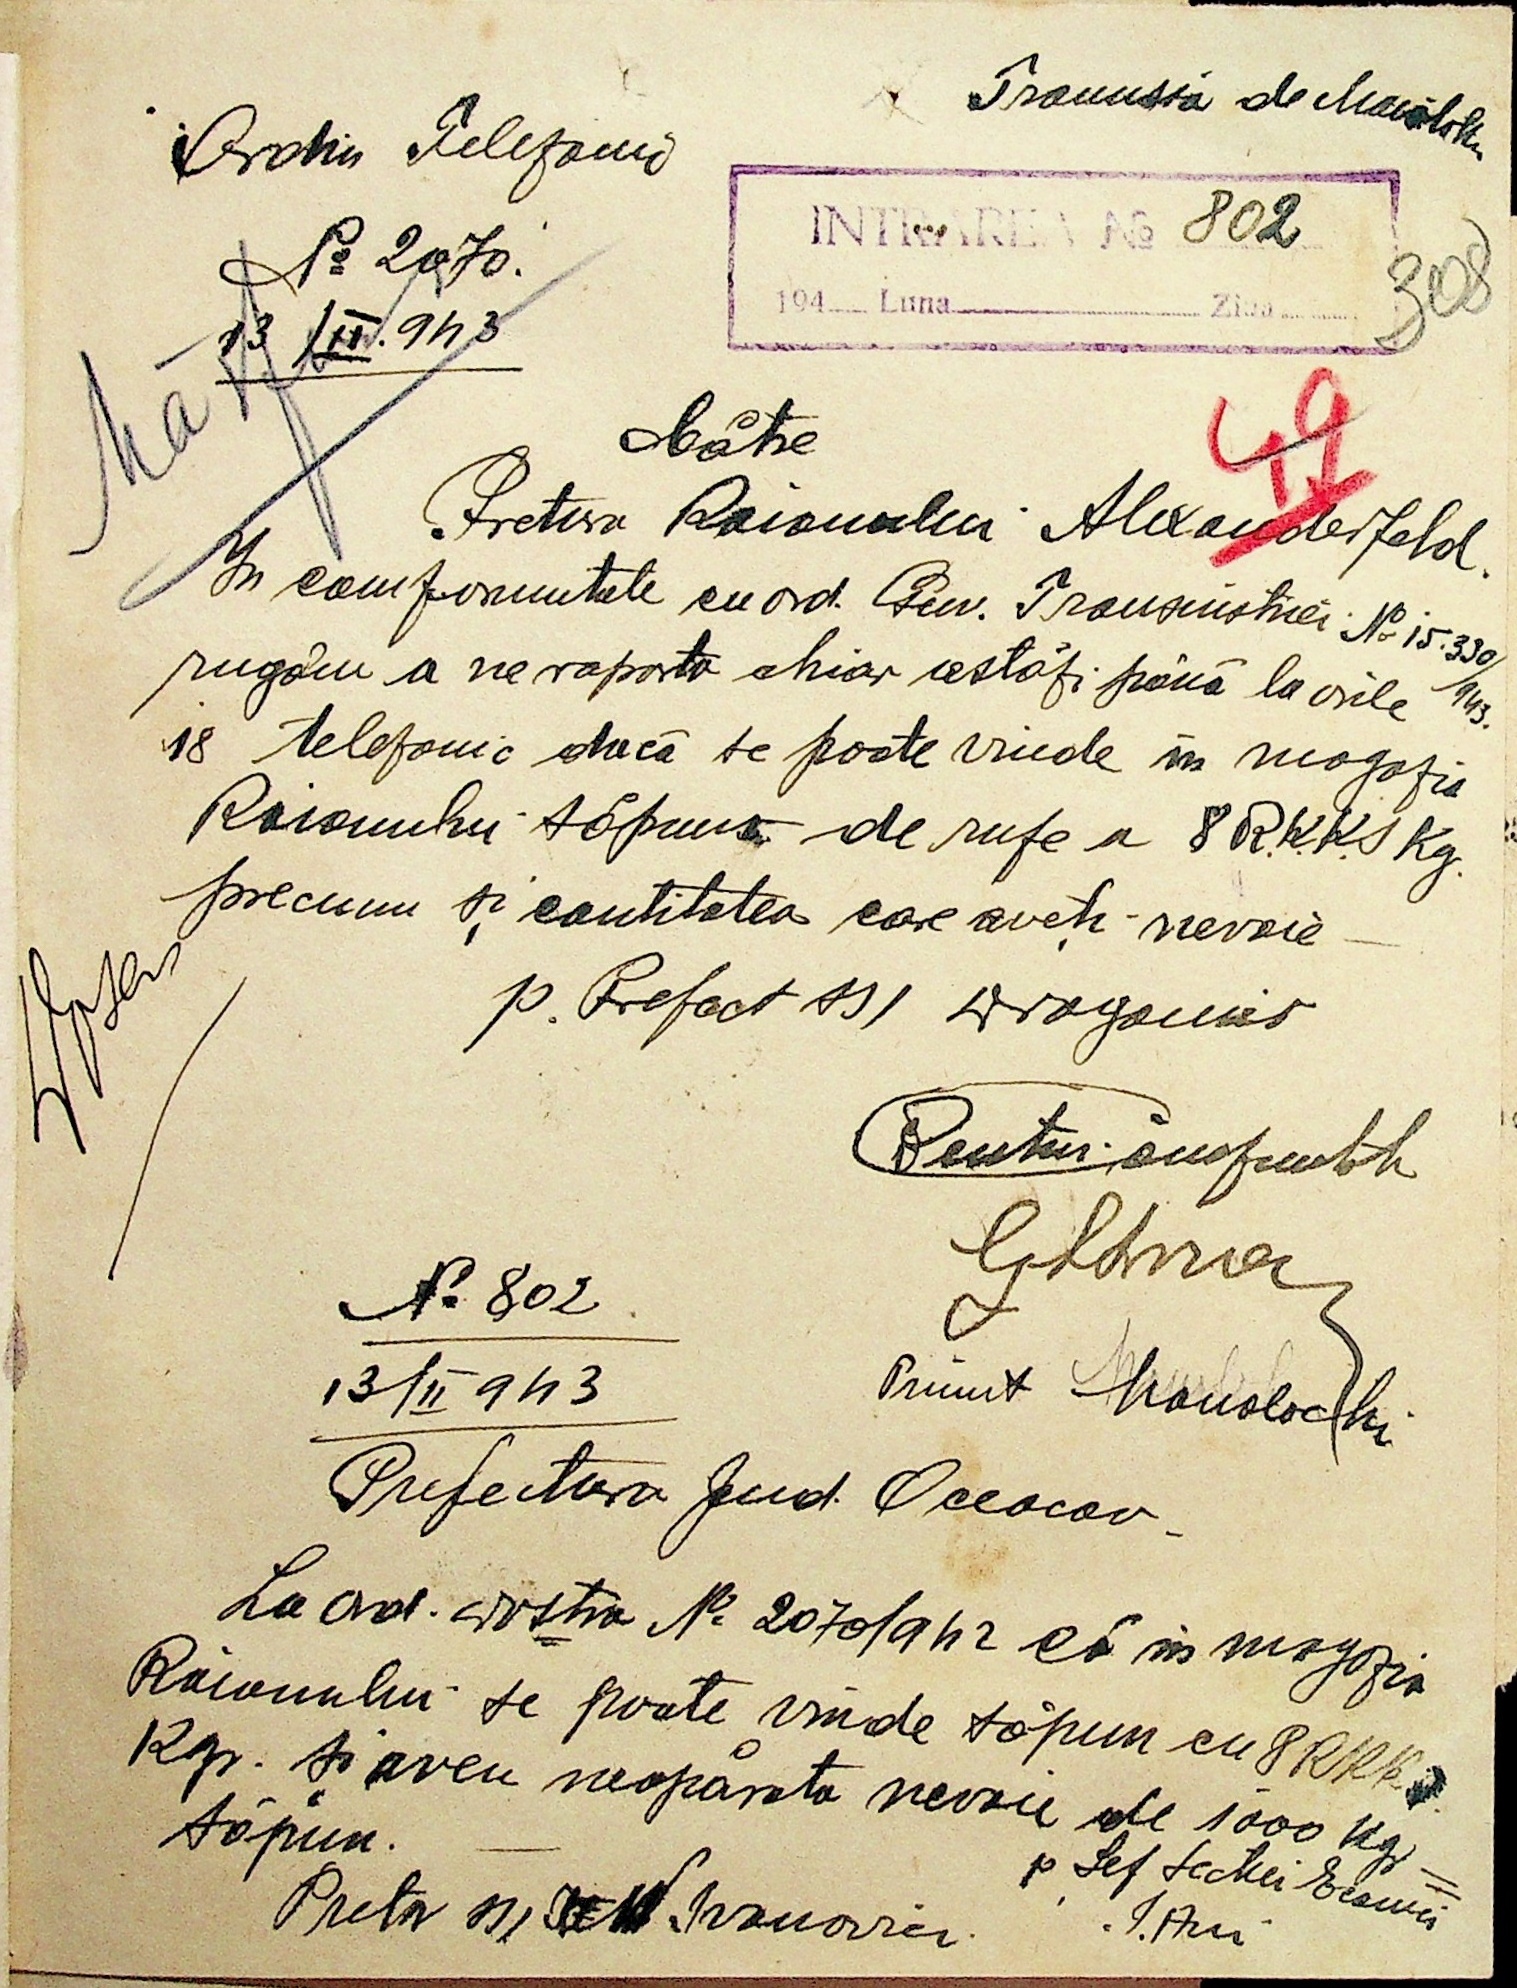 Transmisă de Manoloki
Ordin Telefonic
INTRAREA № 802
194 Luna Ziua
308
№ 2070.
13/II.943
49
Către
Pretura Raionului Alexanderfeld.
In comformitate cu ord. Guv. Transnistriei № 15.330/943.
rugăm a ne raporta chiar astăzi până la orile
18 telefonic dacă se poate vinde în magazia
Raionului săpun de rufe a 8 R.K.K.S Kg.
precum și cantitatea care aveți nevoie
p. Prefect ss/ Dragomir
Pentru conformitate
№ 802
13/II 943
Primit Manolochi
Prefectura Jud. Oceacov
La Ord. Dvostra № 2070/942 că în magazia
Raionului se poate vinde săpun cu 8 RKKS
Kgr. și avem neapărata nevoie de 1000 Kgr
săpun.
p Șef Secției Economii
Pretor ss/ Ivanovici.